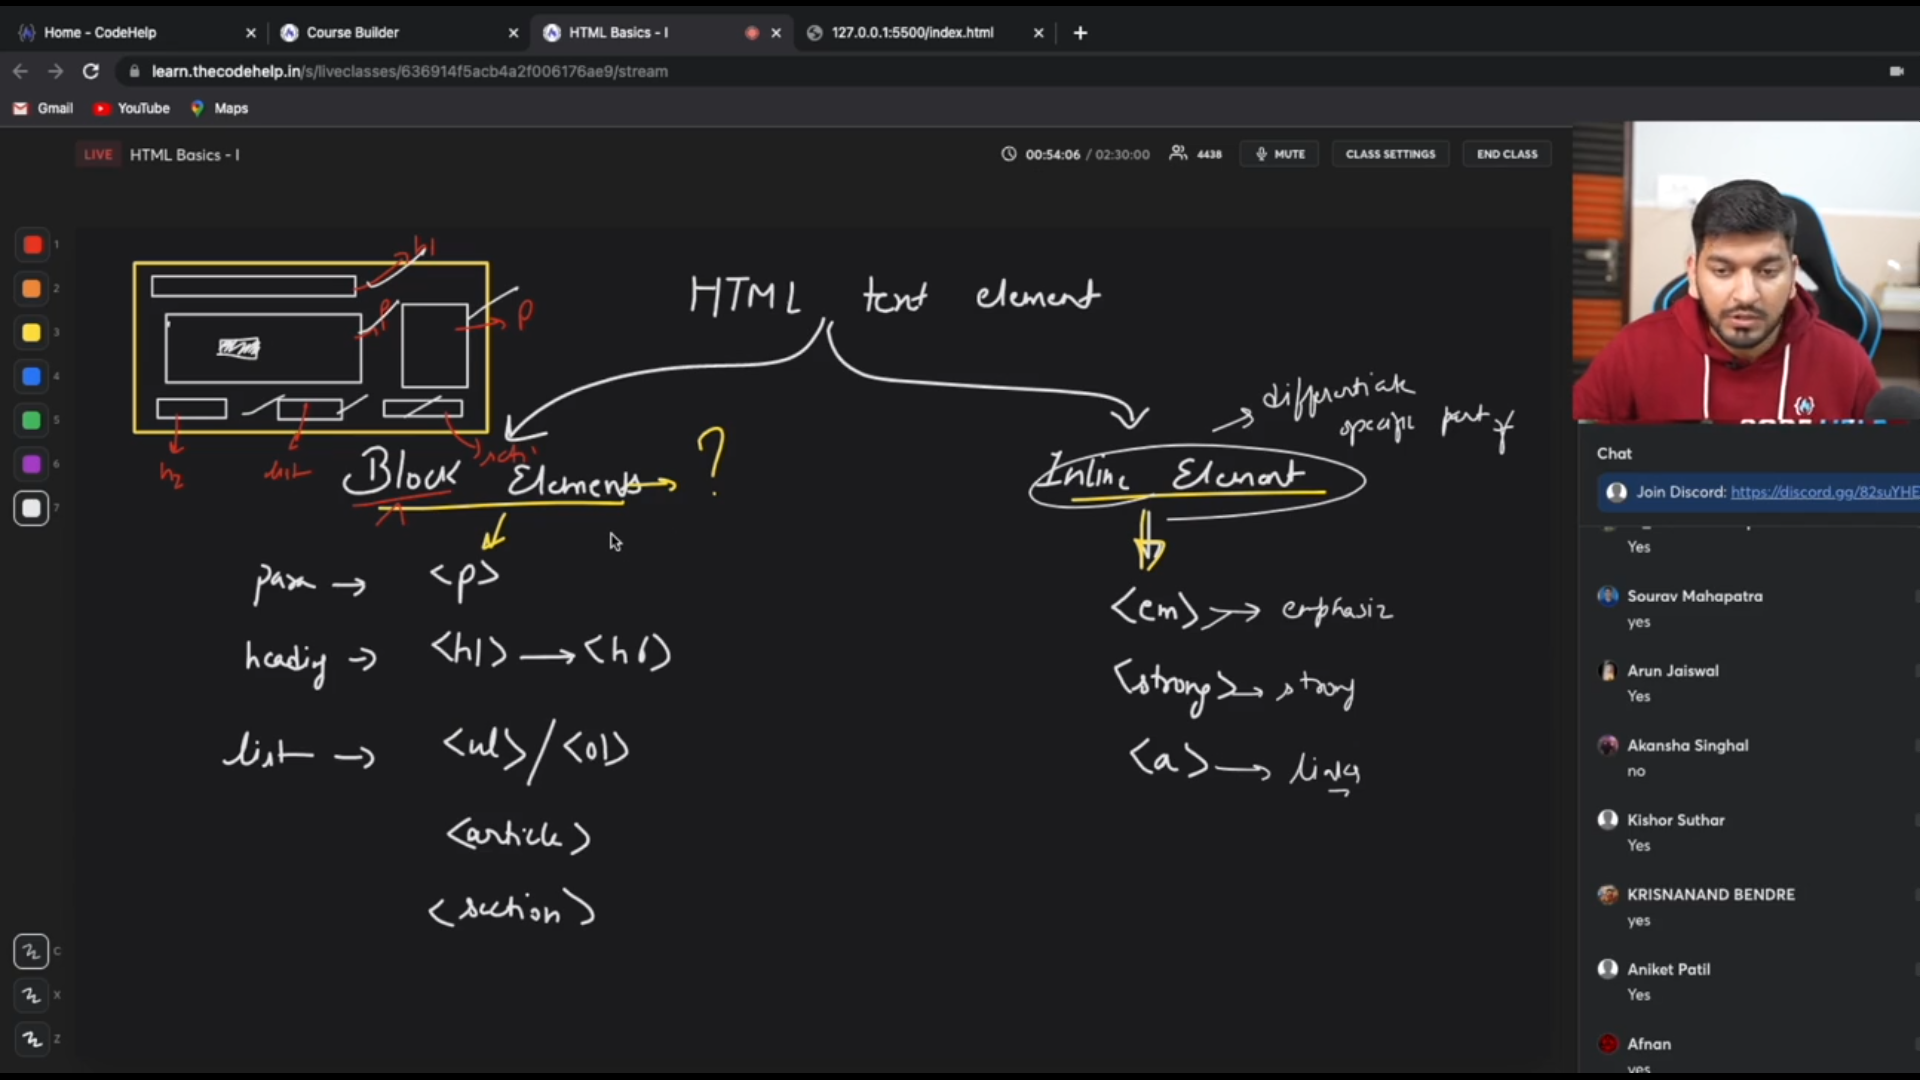 Home - CodeHelp
Course Builder
HTML Basics - I
127.0.0.1:5500/index.html
learn.thecodehelp.in/s/liveclasses/636914f5acb4a2f006176ae9/stream
Gmail
YouTube
Maps
LIVE HTML Basics - I
00:54:06 / 02:30:00
4438
MUTE
CLASS SETTINGS
END CLASS
1
2
3
4
5
6
7
C
X
Z
h1
P
P
h2
list
HTML text element
Block Elements → ?
para → <p>
heading → <h1> → <h6>
list → <ul> / <ol>
<article>
<section>
differentiate
specific part of
Inline Element
<em> → emphasiz
<strong> → strong
<a> → links
Chat
Join Discord: https://discord.gg/82suYHE
Yes
Sourav Mahapatra
yes
Arun Jaiswal
Yes
Akansha Singhal
no
Kishor Suthar
Yes
KRISNANAND BENDRE
yes
Aniket Patil
Yes
Afnan
yes